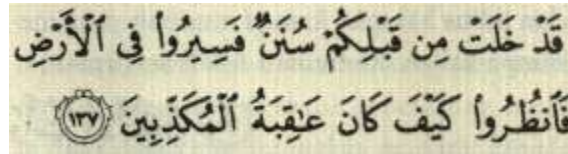 قَدْ خَلَتْ مِن قَبْلِكُمْ سُنَنٌ فَسِيرُوا۟ فِى ٱلْأَرْضِ
فَٱنظُرُوا۟ كَيْفَ كَانَ عَٰقِبَةُ ٱلْمُكَذِّبِينَ ١٣٧